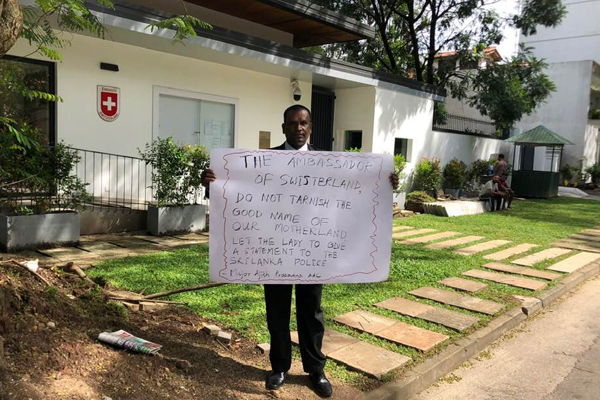 THE AMBASSADOR
OF SWISTERLAND,
DO NOT TARNISH THE
GOOD NAME OF
OUR MOTHERLAND
LET THE LADY TO GIVE
A STATEMENT TO THE
SRI LANKA POLICE
Major Ajith